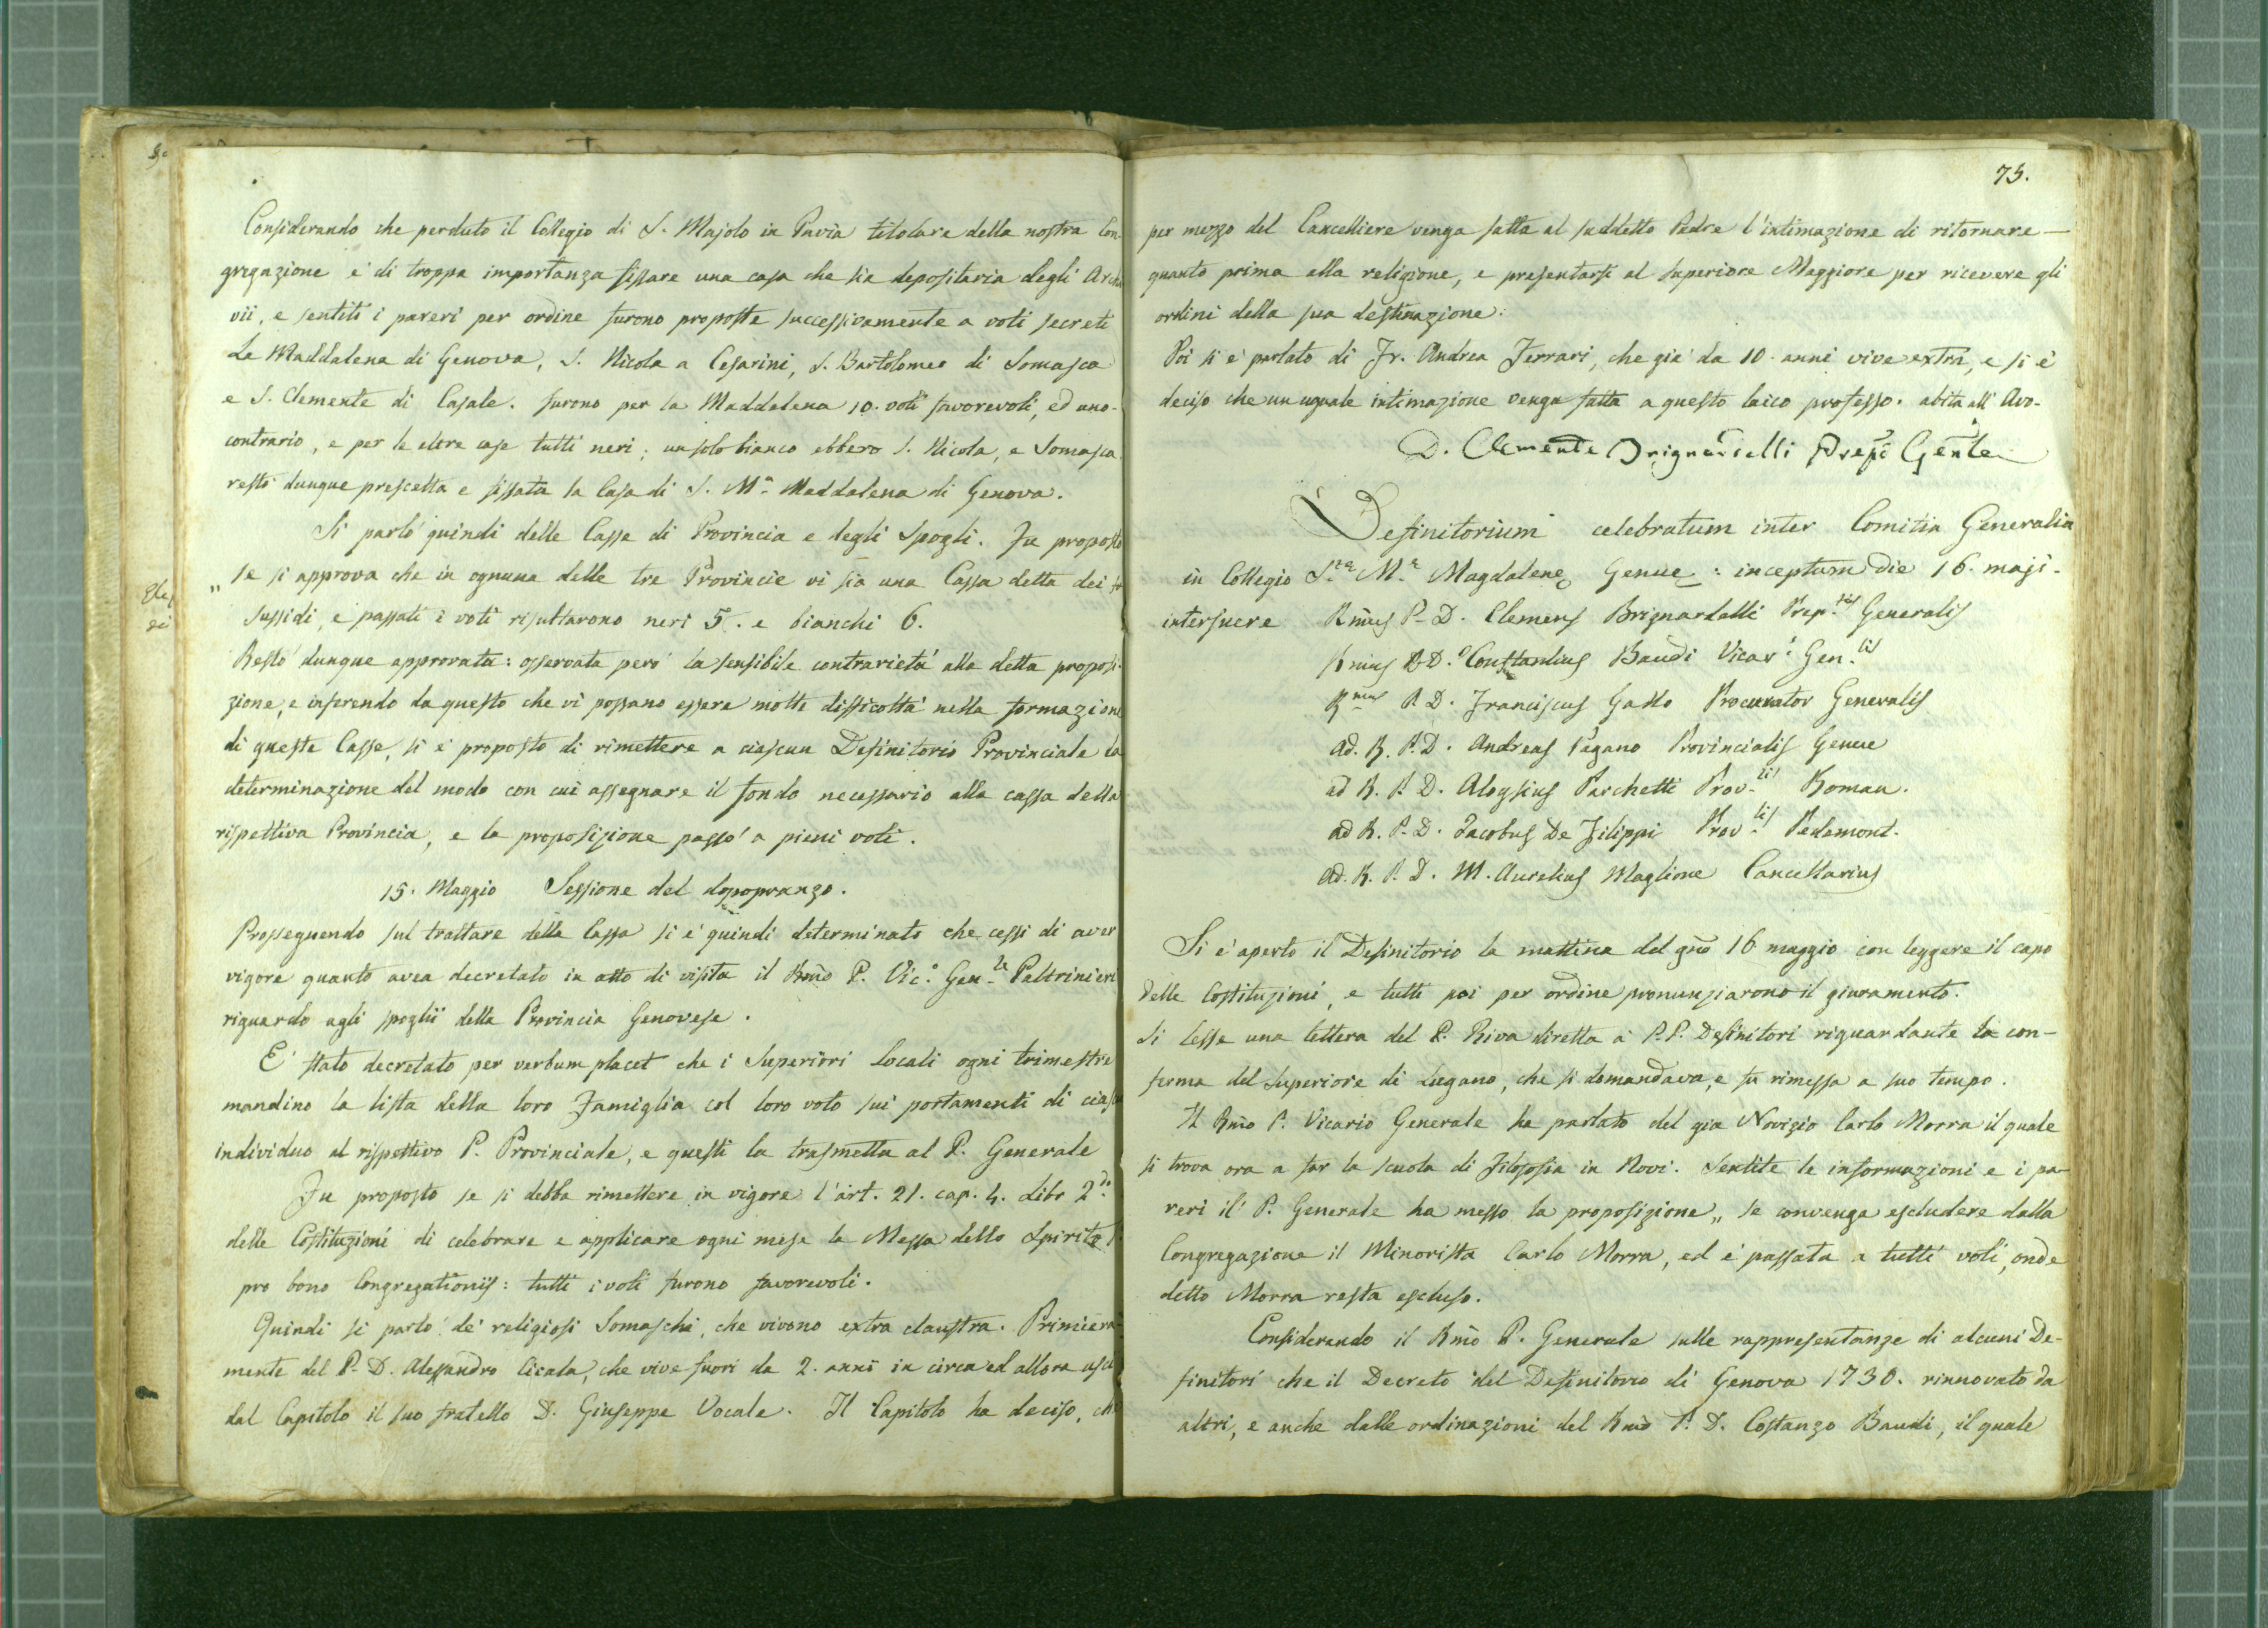 Considerando che perduto il Collegio di S. Majolo in Pavia titolare della nostra Con-
gregazione è di troppa importanza fissare una casa che sia depositaria degli Archi
vii, e sentiti i pareri per ordine furono proposte successivamente a voti secreti
La Maddalena di Genova, S. Nicola a Cesarini, S. Bartolomeo di Somasca
e S. Clemente di Casale. furono per la Maddalena 10. voti favorevoli, ed uno
contrario, e per le altre case tutti neri; un solo bianco ebbero S. Nicola, e Somasca.
restò dunque prescelta e fissata la Casa di S. Mª Maddalena di Genova.
Si parlò quindi delle Casse di Provincia e degli Spogli. Fu proposto
„ se si approva che in ognuna delle tre Provincie vi sia una Cassa detta dei
Sussidi, e passati i voti risultarono neri 5. e bianchi 6.
Restò dunque approvata: osservata però la sensibile contrarietà alla detta proposi-
zione, e inferendo da questo che vi possano essere molte difficoltà nella formazione
di queste Casse, si è proposto di rimettere a ciascun Definitorio Provinciale la
determinazione del modo con cui assegnare il fondo necessario alla cassa della
rispettiva Provincia, e la proposizione passò a pieni voti.
15. Maggio Sessione del dopopranzo.
Prosseguendo sul trattare della Cassa si è quindi determinato che cessi di aver
vigore quanto avea decretato in atto di visita il Rmo P. Vic.º Gen.le Paltrinieri
riguardo agli spoglii della Provincia Genovese.
E' stato decretato per verbum placet che i Superiori Locali ogni trimestre
mandino la lista della loro Famiglia col loro voto sui portamenti di
individuo al rispettivo P. Provinciale, e questi la trasmetta al P. Generale
Fu proposto se si debba rimettere in vigore l'art. 21. cap. 4. Libr 2.do
delle Costituzioni di celebrare e applicare ogni mese la Messa dello Spirito S
pro bono Congregationis: tutti i voti furono favorevoli.
Quindi si parlò de' religiosi Somaschi, che vivono extra claustra. Primiera-
mente del P. D. Alessandro Cicala, che vive fuori da 2. anni in circa ed allora
dal Capitolo il suo fratello D. Giuseppe Vocale. Il Capitolo ha deciso, che
75.
per mezzo del Cancelliere venga fatta al suddetto Padre l'intimazione di ritornare
quanto prima alla religione, e presentarsi al Superiore Maggiore per ricevere gli
ordini della sua destinazione.
Poi si è parlato di Fr. Andrea Ferrari, che già da 10. anni vive extra, e si è
deciso che un uguale intimazione venga fatta a questo laico professo. abita all' Avo-
D. Clemente Brignardelli Prep.º Gen.le
Definitorium celebratum inter Comitia Generalia
in Collegio S.tæ M.æ Magdalenę Genuę: inceptum die 16. maji.
interfuere Rmus P. D. Clemens Brignardelli Prep.tus Generalis
Rmus P. D. Constantius Baudi Vicar.s Gen.lis
Rmus P. D. Franciscus Gallo Procurator Generalis
Ad. R. P. D. Andreas Pagano Provincialis Genue
ad R. P. D. Aloysius Parchetti Prov.lis Roman.
ad R. P. D. Jacobus De Filippi Prov.lis Pedemont.
Ad. R. P. D. M. Aurelius Maglione Cancellarius
Si è aperto il Definitorio la mattina del gno 16 maggio con leggere il capo
delle Costituzioni, e tutti poi per ordine pronunziarono il giuramento.
Si lesse una lettera del P. Riva diretta a' P.P. Definitori riguardante la con-
ferma del Superiore di Lugano, che si domandava, e fu rimessa a suo tempo.
Il Rmo P. Vicario Generale ha parlato del già Novizio Carlo Morra il quale
si trova ora a far la scuola di Filosofia in Novi. Sentite le informazioni e i pa-
reri il P. Generale ha messo la proposizione „ se convenga escludere dalla
Congregazione il Minorista Carlo Morra, ed è passata a tutti voti, onde
detto Morra resta escluso.
Considerando il Rmo P. Generale sulle rappresentanze di alcuni De-
finitori che il Decreto del Definitorio di Genova 1730. rinnovato da
altri, e anche dalle ordinazioni del Rmo P. D. Costanzo Baudi, il quale